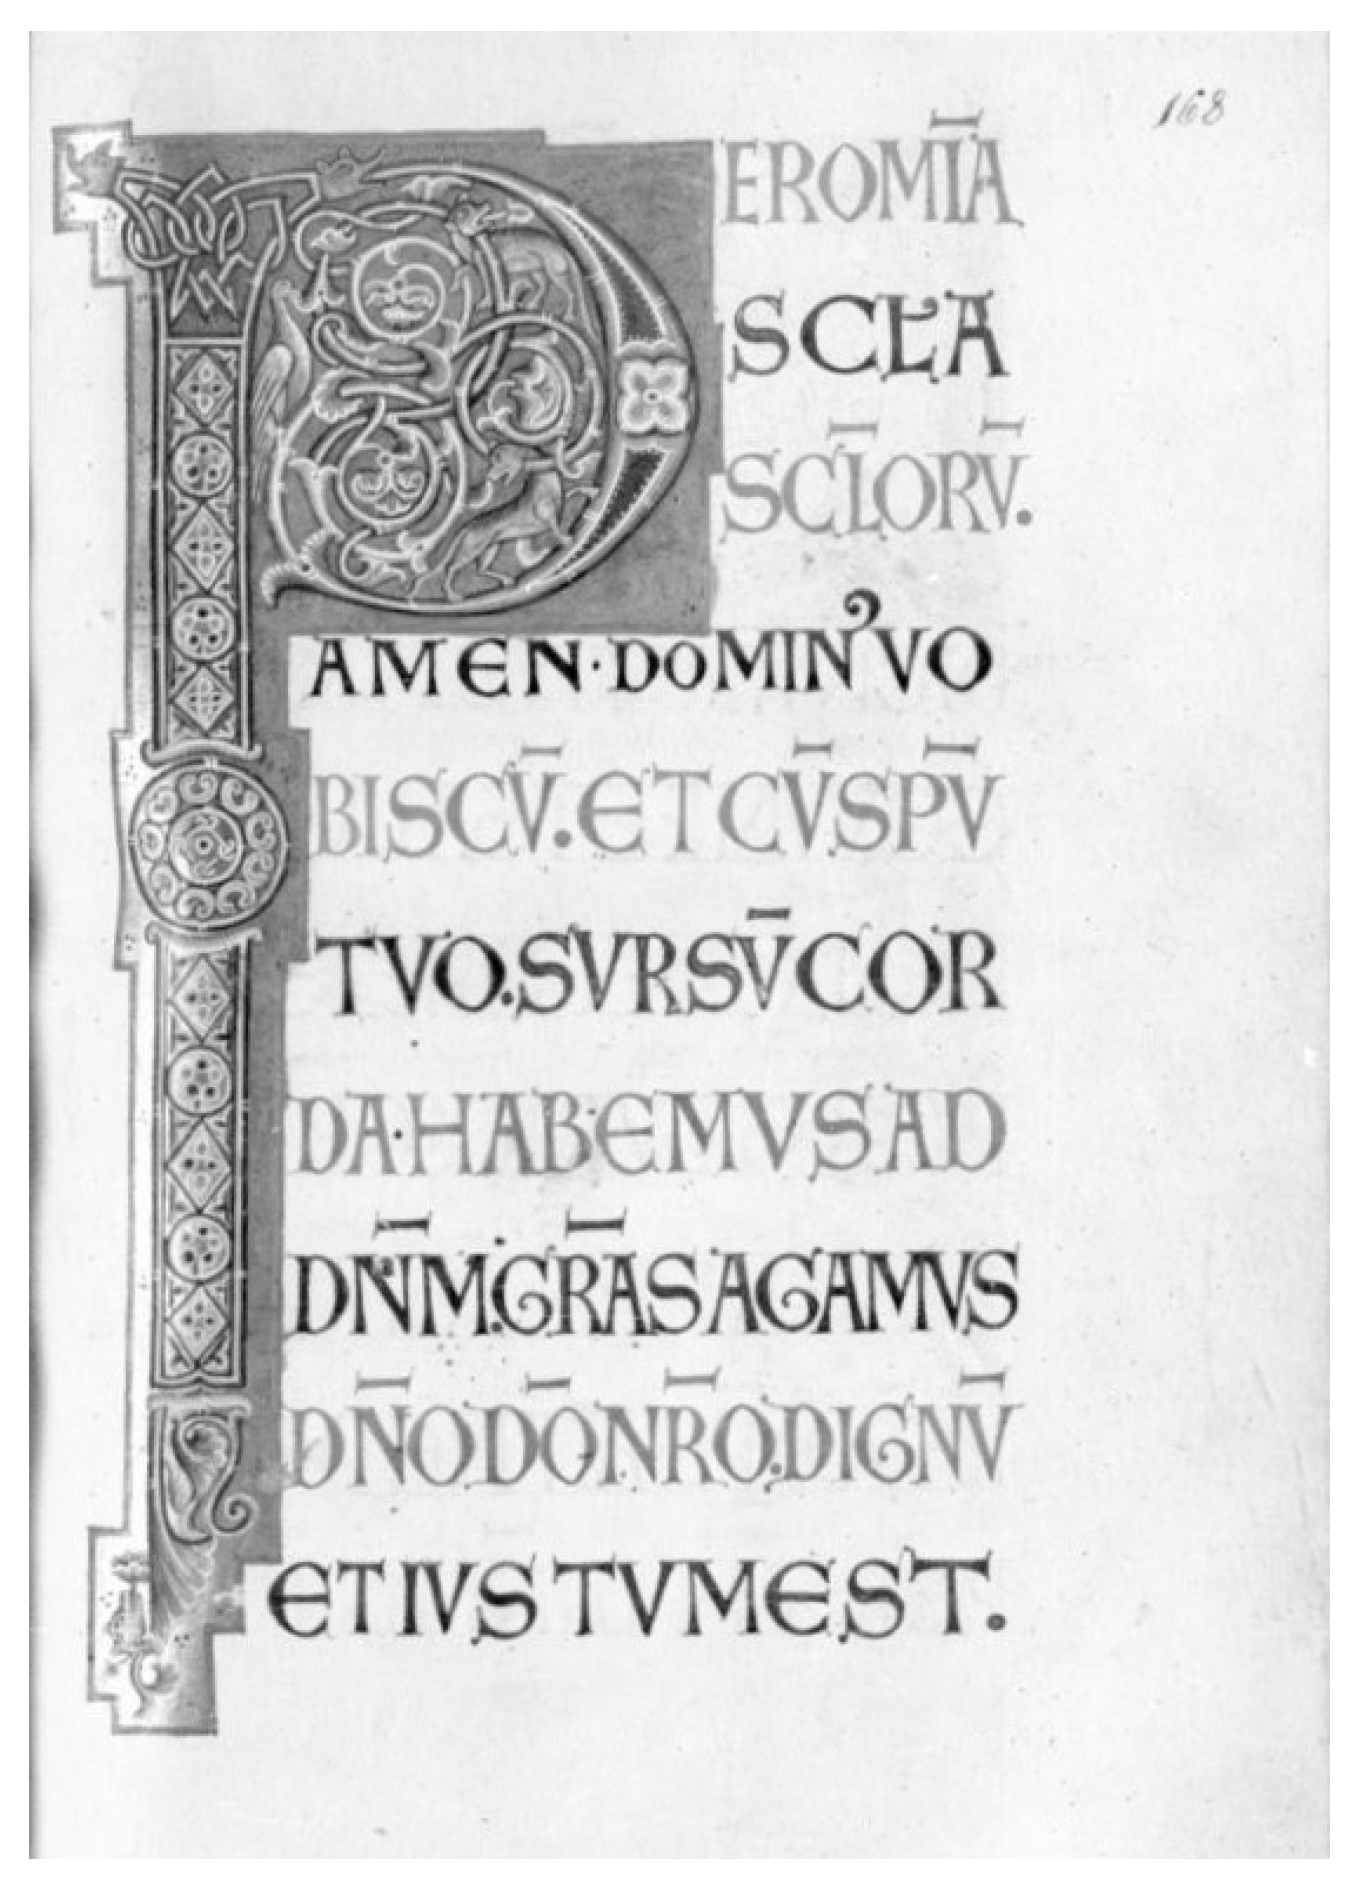 168
PEROMĪA
SCŁA
SCL̄ORV̄.
AMEN·DOMINꝰVO
BISCV̄.ETCV̄SPV̄
TVO.SVRSV̄COR
DA·HABEMVSAD
DN̄M.GRĀSAGAMVS
DN̄ODŌNR̄O.DIGNV̄
ETIVSTVMEST.